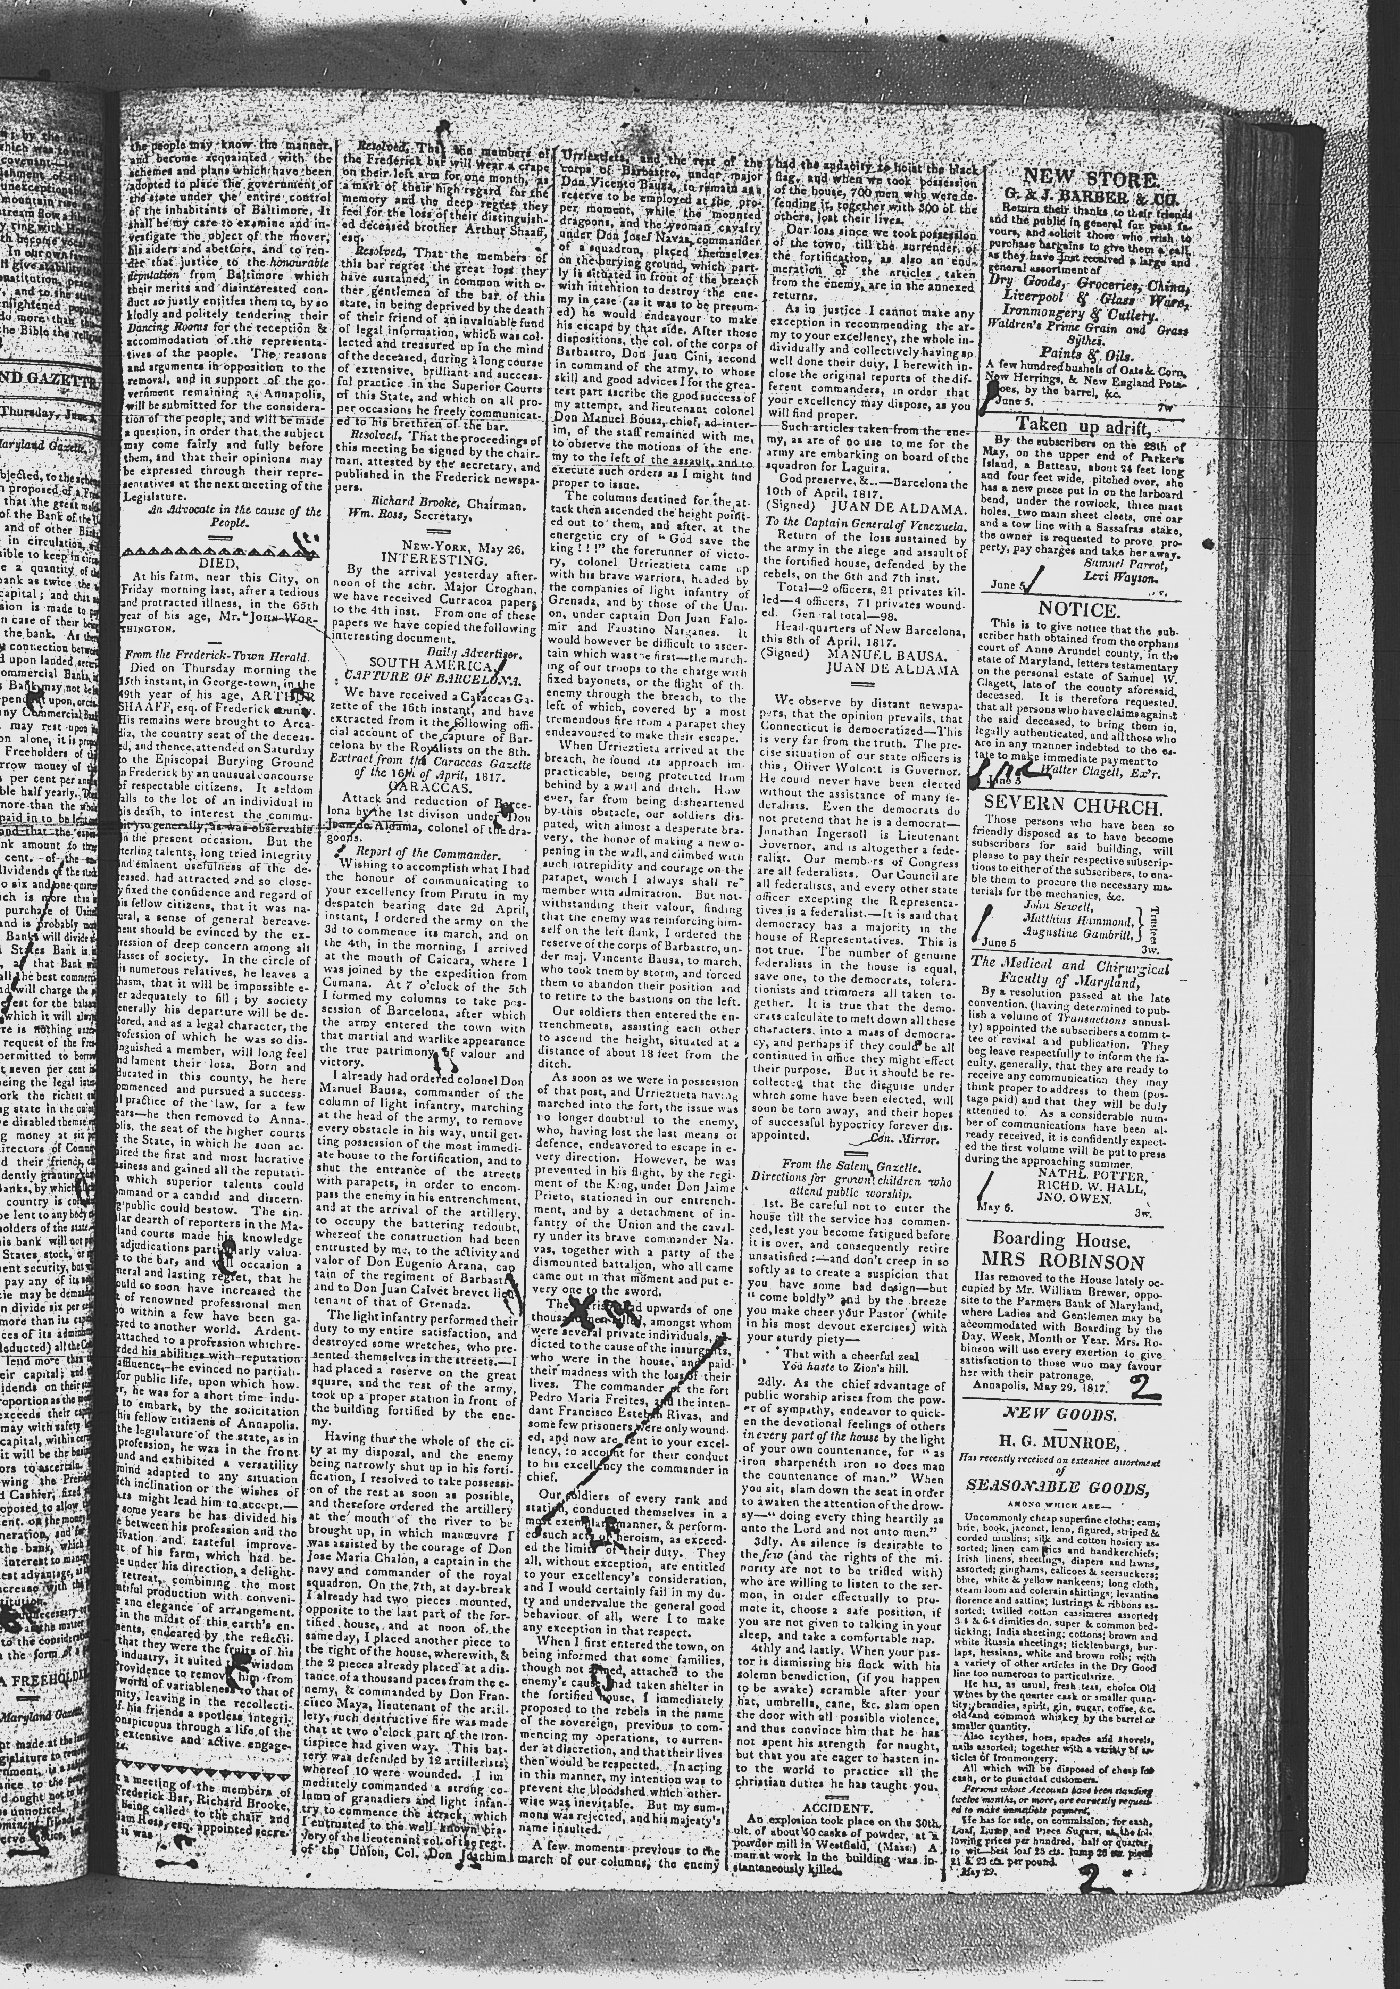 the people may know the manner,
and become acquainted with the
schemes and plans which have been
adopted to place the government of
the state under the entire control
of the inhabitants of Baltimore. It
shall be my care to examine and in-
vestigate the object of the mover,
his aiders and abettors, and to ren-
der that justice to the honourable
deputation from Baltimore which
their merits and disinterested con-
duct so justly entitles them to, by so
kindly and politely tendering their
Dancing Rooms for the reception &
accommodation of the representa-
tives of the people. The reasons
and arguments in opposition to the
removal, and in support of the go-
vernment remaining at Annapolis,
will be submitted for the considera-
tion of the people, and will be made
a question, in order that the subject
may come fairly and fully before
them, and that their opinions may
be expressed through their repre-
sentatives at the next meeting of the
Legislature.
An Advocate in the cause of the
People.
DIED,
At his farm, near this City, on
Friday morning last, after a tedious
and protracted illness, in the 65th
year of his age, Mr. JOHN WOR-
THINGTON.
From the Frederick-Town Herald.
Died on Thursday morning the
15th instant, in George-town, in the
49th year of his age, ARTHUR
SHAAFF, esq. of Frederick county.
His remains were brought to Arca-
dia, the country seat of the deceas-
ed, and thence attended on Saturday
to the Episcopal Burying Ground
in Frederick by an unusual concourse
of respectable citizens. It seldom
falls to the lot of an individual in
his death, to interest the commu-
nity so generally, as was observable
in the present occasion. But the
sterling talents, long tried integrity
and eminent usefulness of the de-
ceased, had attracted and so close-
ly fixed the confidence and regard of
his fellow citizens, that it was na-
tural, a sense of general bereave-
ment should be evinced by the ex-
pression of deep concern among all
classes of society. In the circle of
his numerous relatives, he leaves a
chasm, that it will be impossible e-
ver adequately to fill; by society
generally his departure will be de-
plored, and as a legal character, the
profession of which he was so dis-
tinguished a member, will long feel
and lament their loss. Born and
educated in this county, he here
commenced and pursued a success-
ful practice of the law, for a few
years—he then removed to Anna-
polis, the seat of the higher courts
of the State, in which he soon ac-
quired the first and most lucrative
business and gained all the reputati-
on which superior talents could
command or a candid and discern-
ing public could bestow. The sin-
gular dearth of reporters in the Ma-
ryland courts made his knowledge
of adjudications particularly valua-
ble to the bar, and will occasion a
general and lasting regret, that he
should so soon have increased the
list of renowned professional men
who within a few have been ga-
thered to another world. Ardent-
ly attached to a profession which re-
warded his abilities with reputation
and affluence, he evinced no partiali-
ty for public life, upon which how-
ever, he was for a short time indu-
ced to embark, by the solicitation
of his fellow citizens of Annapolis.
In the legislature of the state, as in
his profession, he was in the front
and exhibited a versatility
of mind adapted to any situation
which inclination or the wishes of
his might lead him to accept.—
For some years he has divided his
time between his profession and the
cultivation and tasteful improve-
ment of his farm, which had be-
come under his direction, a delight-
ful retreat, combining the most
fruitful production with conveni-
ence and elegance of arrangement.
in the midst of this earth's en-
joyments, endeared by the reflecti-
on that they were the fruits of his
industry, it suited the wisdom
of Providence to remove him from
this world of variableness to that of
eternity, leaving in the recollecti-
on of his friends a spotless integri-
ty conspicuous through a life of the
most extensive and active engage-
ments.
At a meeting of the members of
the Frederick Bar, Richard Brooke,
being called to the chair and
William Ross, esq. appointed secre-
tary, it was
Resolved, That the members of
the Frederick bar will wear a crape
on their left arm for one month, as
a mark of their high regard for the
memory and the deep regret they
feel for the loss of their distinguish-
ed deceased brother Arthur Shaaff,
esq.
Resolved, That the members of
this bar regret the great loss they
have sustained, in common with o-
ther gentlemen of the bar of this
state, in being deprived by the death
of their friend of an invaluable fund
of legal information, which was col-
lected and treasured up in the mind
of the deceased, during a long course
of extensive, brilliant and success-
ful practice in the Superior Courts
of this State, and which on all pro-
per occasions he freely communicat-
ed to his brethren of the bar.
Resolved, That the proceedings of
this meeting be signed by the chair-
man, attested by the secretary, and
published in the Frederick newspa-
pers.
Richard Brooke, Chairman.
Wm. Ross, Secretary.
NEW-YORK, May 26.
INTERESTING.
By the arrival yesterday after-
noon of the schr. Major Croghan,
we have received Curracoa papers
to the 4th inst. From one of these
papers we have copied the following
interesting document.
Daily Advertiser.
SOUTH AMERICA.
CAPTURE OF BARCELONA.
We have received a Caraccas Ga-
zette of the 16th instant, and have
extracted from it the following offi-
cial account of the capture of Bar-
celona by the Royalists on the 8th.
Extract from the Caraccas Gazette
of the 16th of April, 1817.
CARACCAS.
Attack and reduction of Barce-
lona by the 1st divison under Don
Juan de Aldama, colonel of the dra-
goons.
Report of the Commander.
Wishing to accomplish what I had
the honour of communicating to
your excellency from Pirutu in my
despatch bearing date 2d April,
instant, I ordered the army on the
3d to commence its march, and on
the 4th, in the morning, I arrived
at the mouth of Caicara, where I
was joined by the expedition from
Cumana. At 7 o'clock of the 5th
I formed my columns to take pos-
session of Barcelona, after which
the army entered the town with
that martial and warlike appearance
the true patrimony of valour and
victory.
I already had ordered colonel Don
Manuel Bausa, commander of the
column of light infantry, marching
at the head of the army, to remove
every obstacle in his way, until get-
ting possession of the most immedi-
ate house to the fortification, and to
shut the entrance of the streets
with parapets, in order to encom-
pass the enemy in his entrenchment,
and at the arrival of the artillery,
to occupy the battering redoubt,
whereof the construction had been
entrusted by me, to the activity and
valor of Don Eugenio Arana, cap
tain of the regiment of Barbastro,
and to Don Juan Calvet brevet lieu-
tenant of that of Grenada.
The light infantry performed their
duty to my entire satisfaction, and
destroyed some wretches, who pre-
sented themselves in the streets.—I
had placed a reserve on the great
square, and the rest of the army,
took up a proper station in front of
the building fortified by the ene-
my.
Having thus the whole of the ci-
ty at my disposal, and the enemy
being narrowly shut up in his forti-
fication, I resolved to take possessi-
on of the rest as soon as possible,
and therefore ordered the artillery
at the mouth of the river to be
brought up, in which manœuvre I
was assisted by the courage of Don
Jose Maria Chalon, a captain in the
navy and commander of the royal
squadron. On the 7th, at day-break
I already had two pieces mounted,
opposite to the last part of the for-
tified house, and at noon of the
same day, I placed another piece to
the right of the house, wherewith, &
the 2 pieces already placed at a dis-
tance of a thousand paces from the e-
nemy, & commanded by Don Fran-
cisco Maya, lieutenant of the artil-
lery, such destructive fire was made
that at two o'clock part of the fron-
tispiece had given way. This bat-
tery was defended by 12 artillerists,
whereof 10 were wounded. I im
mediately commanded a strong co-
lumn of granadiers and light infan-
try to commence the attack, which
I entrusted to the well known bra-
very of the lieutenant col. of the regt.
of the Union, Col. Don Joachim
Urrieztieta, and the rest of the
corps of Barbastro, under major
Don Vicente Bausa, to remain as a
reserve to be employed at the pro-
per moment, while the mounted
dragoons, and the yeoman cavalry
under Don Josef Navas, commander
of a squadron, placed themselves
on the burying ground, which part-
ly is situated in front of the breach
with intention to destroy the ene-
my in case (as it was to be presum-
ed) he would endeavour to make
his escape by that side. After those
dispositions, the col. of the corps of
Barbastro, Don Juan Cini, second
in command of the army, to whose
skill and good advices I for the grea-
test part ascribe the good success of
my attempt, and lieutenant colonel
Don Manuel Bousa, chief, ad-inter-
im, of the staff remained with me,
to observe the motions of the ene-
my to the left of the assault, and to
execute such orders as I might find
proper to issue.
The columns destined for the at-
tack then ascended the height pointi-
ed out to them, and after, at the
energetic cry of "God save the
king!!!" the forerunner of victo-
ry, colonel Urrieztieta came up
with his brave warriors, headed by
the companies of light infantry of
Grenada, and by those of the Uni-
on, under captain Don Juan Falo-
mir and Faustino Narganes. It
would however be difficult to ascer-
tain which was the first—the march-
ing of our troops to the charge with
fixed bayonets, or the flight of th.
enemy through the breach, to the
left of which, covered by a most
tremendous fire from a parapet they
endeavoured to make their escape.
When Urrieztieta arrived at the
breach, he found its approach im-
practicable, being protected from
behind by a wall and ditch. How
ever, far from being disheartened
by this obstacle, our soldiers dis-
puted, with almost a desperate bra-
very, the honor of making a new o-
pening in the wall, and climbed with
such intrepidity and courage on the
parapet, which I always shall re
member with admiration. But not-
withstanding their valour, finding
that the enemy was reinforcing him-
self on the left flank, I ordered the
reserve of the corps of Barbastro, un-
der maj. Vincente Bausa, to march,
who took them by storm, and forced
them to abandon their position and
to retire to the bastions on the left.
Our soldiers then entered the en-
trenchments, assisting each other
to ascend the height, situated at a
distance of about 18 feet from the
ditch.
As soon as we were in possession
of that post, and Urrieztieta having
marched into the fort, the issue was
no longer doubtful to the enemy,
who, having lost the last means of
defence, endeavored to escape in e-
very direction. However, he was
prevented in his flight, by the regi-
ment of the King, under Don Jaime
Prieto, stationed in our entrench-
ment, and by a detachment of in-
fantry of the Union and the caval-
ry under its brave commander Na-
vas, together with a party of the
dismounted battalion, who all came
came out in that moment and put e-
very one to the sword.
upwards of one
amongst whom
were several private individuals,
dicted to the cause of the insurgents,
who were in the house, and paid
their madness with the loss of their
lives. The commander of the fort
Pedro Maria Freites, and the inten-
dant Francisco Esteban Rivas, and
some few prisoners were only wound-
ed, and now are sent to your excel-
lency, to account for their conduct
to his excellency the commander in
chief.
Our soldiers of every rank and
station, conducted themselves in a
most exemplary manner, & perform-
ed such acts of heroism, as exceed-
ed the limits of their duty. They
all, without exception, are entitled
to your excellency's consideration,
and I would certainly fail in my du-
ty and undervalue the general good
behaviour of all, were I to make
any exception in that respect.
When I first entered the town, on
being informed that some families,
though not armed, attached to the
enemy's cause had taken shelter in
the fortified house, I immediately
proposed to the rebels in the name
of the sovereign, previous to com-
mencing my operations, to surren-
der at discretion, and that their lives
then would be respected. In acting
in this manner, my intention was to
prevent the bloodshed which other-
wise was inevitable. But my sum-
mons was rejected, and his majesty's
name insulted.
A few moments previous to the
march of our columns, the enemy
had the audacity to hoist the black
flag, and when we took possession
of the house, 700 men who were de-
fending it, together with 300 of the
others, lost their lives.
Our loss since we took possession
of the town, till the surrender of
the fortification, as also an enu-
meration of the articles taken
from the enemy, are in the annexed
returns.
As in justice I cannot make any
exception in recommending the ar-
my to your excellency, the whole in-
dividually and collectively having so
well done their duty, I herewith in-
close the original reports of the dif-
ferent commanders, in order that
your excellency may dispose, as you
will find proper.
Such articles taken from the ene-
my, as are of no use to me for the
army are embarking on board of the
squadron for Laguira.
God preserve, &c.—Barcelona the
10th of April, 1817.
(Signed) JUAN DE ALDAMA.
To the Captain General of Venezuela.
Return of the loss sustained by
the army in the siege and assault of
the fortified house, defended by the
rebels, on the 6th and 7th inst.
Total—2 officers, 21 privates kil-
led—4 officers, 71 privates wound-
ed. General total—98.
Head-quarters of New Barcelona,
this 8th of April, 1817.
(Signed) MANUEL BAUSA.
JUAN DE ALDAMA
We observe by distant newspa-
pers, that the opinion prevails, that
Connecticut is democratized—This
is very far from the truth. The pre-
cise situation of our state officers is
this, Oliver Wolcott is Governor.
He could never have been elected
without the assistance of many fe-
deralists. Even the democrats do
not pretend that he is a democrat—
Jonathan Ingersoll is Lieutenant
Governor, and is altogether a fede-
ralist. Our members of Congress
are all federalists. Our Council are
all federalists, and every other state
officer excepting the Representa-
tives is a federalist.—It is said that
democracy has a majority in the
house of Representatives. This is
not true. The number of genuine
federalists in the house is equal,
save one, to the democrats, tolera-
tionists and trimmers all taken to-
gether. It is true that the demo-
crats calculate to melt down all these
characters, into a mass of democra-
cy, and perhaps if they could be all
continued in office they might effect
their purpose. But it should be re-
collected that the disguise under
which some have been elected, will
soon be torn away, and their hopes
of successful hypocrisy forever dis-
appointed.
Con. Mirror.
From the Salem Gazette.
Directions for grown children who
attend public worship.
1st. Be careful not to enter the
house till the service has commen-
ced, lest you become fatigued before
it is over, and consequently retire
unsatisfied:—and don't creep in so
softly as to create a suspicion that
you have some bad design—but
"come boldly" and by the breeze
you make cheer your Pastor (while
in his most devout exercises) with
your sturdy piety—
That with a cheerful zeal
You haste to Zion's hill.
2dly. As the chief advantage of
public worship arises from the pow-
er of sympathy, endeavor to quick-
en the devotional feelings of others
in every part of the house by the light
of your own countenance, for "as
iron sharpeneth iron so does man
the countenance of man." When
you sit, slam down the seat in order
to awaken the attention of the drow-
sy—"doing every thing heartily as
unto the Lord and not unto men."
3dly. As silence is desirable to
the few (and the rights of the mi-
nority are not to be trifled with)
who are willing to listen to the ser-
mon, in order effectually to pro-
mote it, choose a safe position, if
you are not given to talking in your
sleep, and take a comfortable nap.
4thly and lastly. When your pas-
tor is dismissing his flock with his
solemn benediction, (if you happen
to be awake) scramble after your
hat, umbrella, cane, &c. slam open
the door with all possible violence,
and thus convince him that he has
not spent his strength for naught,
but that you are eager to hasten in-
to the world to practice all the
christian duties he has taught you.
ACCIDENT.
An explosion took place on the 30th,
ult. of about 40 casks of powder, at a
powder mill in Westfield, (Mass.) A
man at work in the building was in-
stantaneously killed.
NEW STORE.
G. & J. BARBER & CO.
Return their thanks to their friends
and the public in general for past fa-
vours, and solicit those who wish to
purchase bargains to give them a call,
as they have just received a large and
general assortment of
Dry Goods, Groceries, China,
Liverpool & Glass Ware,
Ironmongery & Cutlery.
Waldren's Prime Grain and Grass
Sythes.
Paints & Oils.
A few hundred bushels of Oats & Corn,
New Herrings, & New England Pota-
toes, by the barrel, &c.
June 5. 7w
Taken up adrift,
By the subscribers on the 28th of
May, on the upper end of Parker's
Island, a Batteau, about 24 feet long
and four feet wide, pitched over, she
has a new piece put in on the larboard
bend, under the rowlock, three mast
holes, two main sheet cleets, one oar
and a tow line with a Sassafras stake,
the owner is requested to prove pro-
perty, pay charges and take her away.
Samuel Parrot,
Levi Wayson.
June 5
NOTICE.
This is to give notice that the sub-
scriber hath obtained from the orphans
court of Anne Arundel county, in the
state of Maryland, letters testamentary
on the personal estate of Samuel W.
Clagett, late of the county aforesaid,
deceased. It is therefore requested,
that all persons who have claims against
the said deceased, to bring them in,
legally authenticated, and all those who
are in any manner indebted to the es-
tate to make immediate payment to
Walter Clagett, Ex'r.
June 5
SEVERN CHURCH.
Those persons who have been so
friendly disposed as to have become
subscribers for said building, will
please to pay their respective subscrip-
tions to either of the subscribers, to ena-
ble them to procure the necessary ma-
terials for the mechanics, &c.
John Sewell,
Matthias Hammond,
Augustine Gambrill,
Trustees
June 5 3w.
The Medical and Chirurgical
Faculty of Maryland,
By a resolution passed at the late
convention, (having determined to pub-
lish a volume of Transactions annual-
ly) appointed the subscribers a commit-
tee of revisal and publication. They
beg leave respectfully to inform the fa-
culty, generally, that they are ready to
receive any communication they may
think proper to address to them (pos-
tage paid) and that they will be duly
attended to. As a considerable num-
ber of communications have been al-
ready received, it is confidently expect-
ed the first volume will be put to press
during the approaching summer.
NATHL. POTTER,
RICHD. W. HALL,
JNO. OWEN.
May 6. 3w.
Boarding House.
MRS ROBINSON
Has removed to the House lately oc-
cupied by Mr. William Brewer, oppo-
site to the Farmers Bank of Maryland,
where Ladies and Gentlemen may be
accommodated with Boarding by the
Day, Week, Month or Year. Mrs. Ro-
binson will use every exertion to give
satisfaction to those who may favour
her with their patronage.
Annapolis, May 29, 1817. 2
NEW GOODS.
H. G. MUNROE,
Has recently received an extensive assortment
of
SEASONABLE GOODS,
AMONG WHICH ARE—
Uncommonly cheap superfine cloths; cam-
bric, book, jaconet, leno, figured, striped &
corded muslins; silk and cotton hosiery as-
sorted; linen cambrics and handkerchiefs;
Irish linens, sheetings, diapers and lawns,
assorted; ginghams, calicoes & seersuckers;
blue, white & yellow nankeens; long cloth,
steam loom and colerain shirtings; levantine
florence and sattins; lustrings & ribbons as-
sorted; twilled cotton cassimeres assorted;
3-4 & 6-4 dimities do. super & common bed-
ticking; India sheeting; cottons; brown and
white Russia sheetings; ticklenburgs, bur-
laps, hessians, white and brown rolls; with
a variety of other articles in the Dry Good
line too numerous to particularize.
He has, as usual, fresh teas, choice Old
Wines by the quarter cask or smaller quan-
tity, brandies, spirit, gin, sugar, coffee, &c.
old and common whiskey by the barrel or
smaller quantity.
Also scythes, hoes, spades and shovels,
nails assorted; together with a variety of ar-
ticles of Ironmongery.
All which will be disposed of cheap for
cash, or to punctual customers.
Persons whose Accounts have been standing
twelve months, or more, are earnestly request-
ed to make immediate payment.
He has for sale, on commission, for cash,
Loaf, Lump and Piece Sugars, at the fol-
lowing prices per hundred, half or quarter
to wit—best loaf 25 cts. lump 20
21 & 23 cts. per pound.
May 29. 2